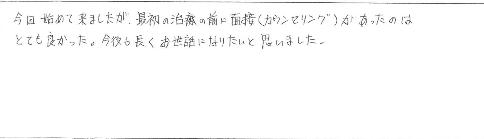 今回始めて来ましたが、最初の治療の前に面接(カウンセリング)があったのは
とても良かった。今後も長くお世話になりたいと思いました。